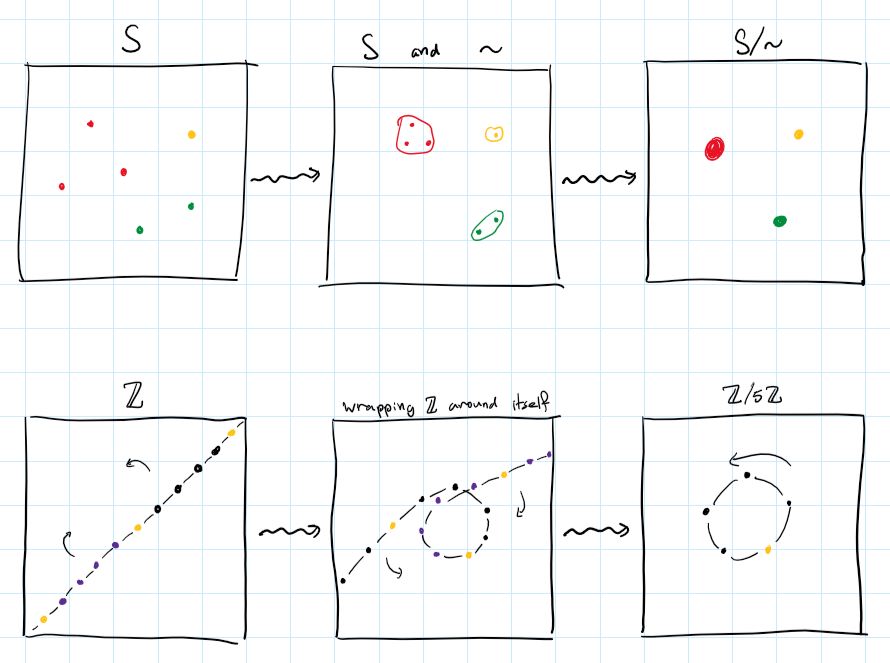 S
S and ~
S/~
ℤ
wrapping ℤ around itself
ℤ/5ℤ